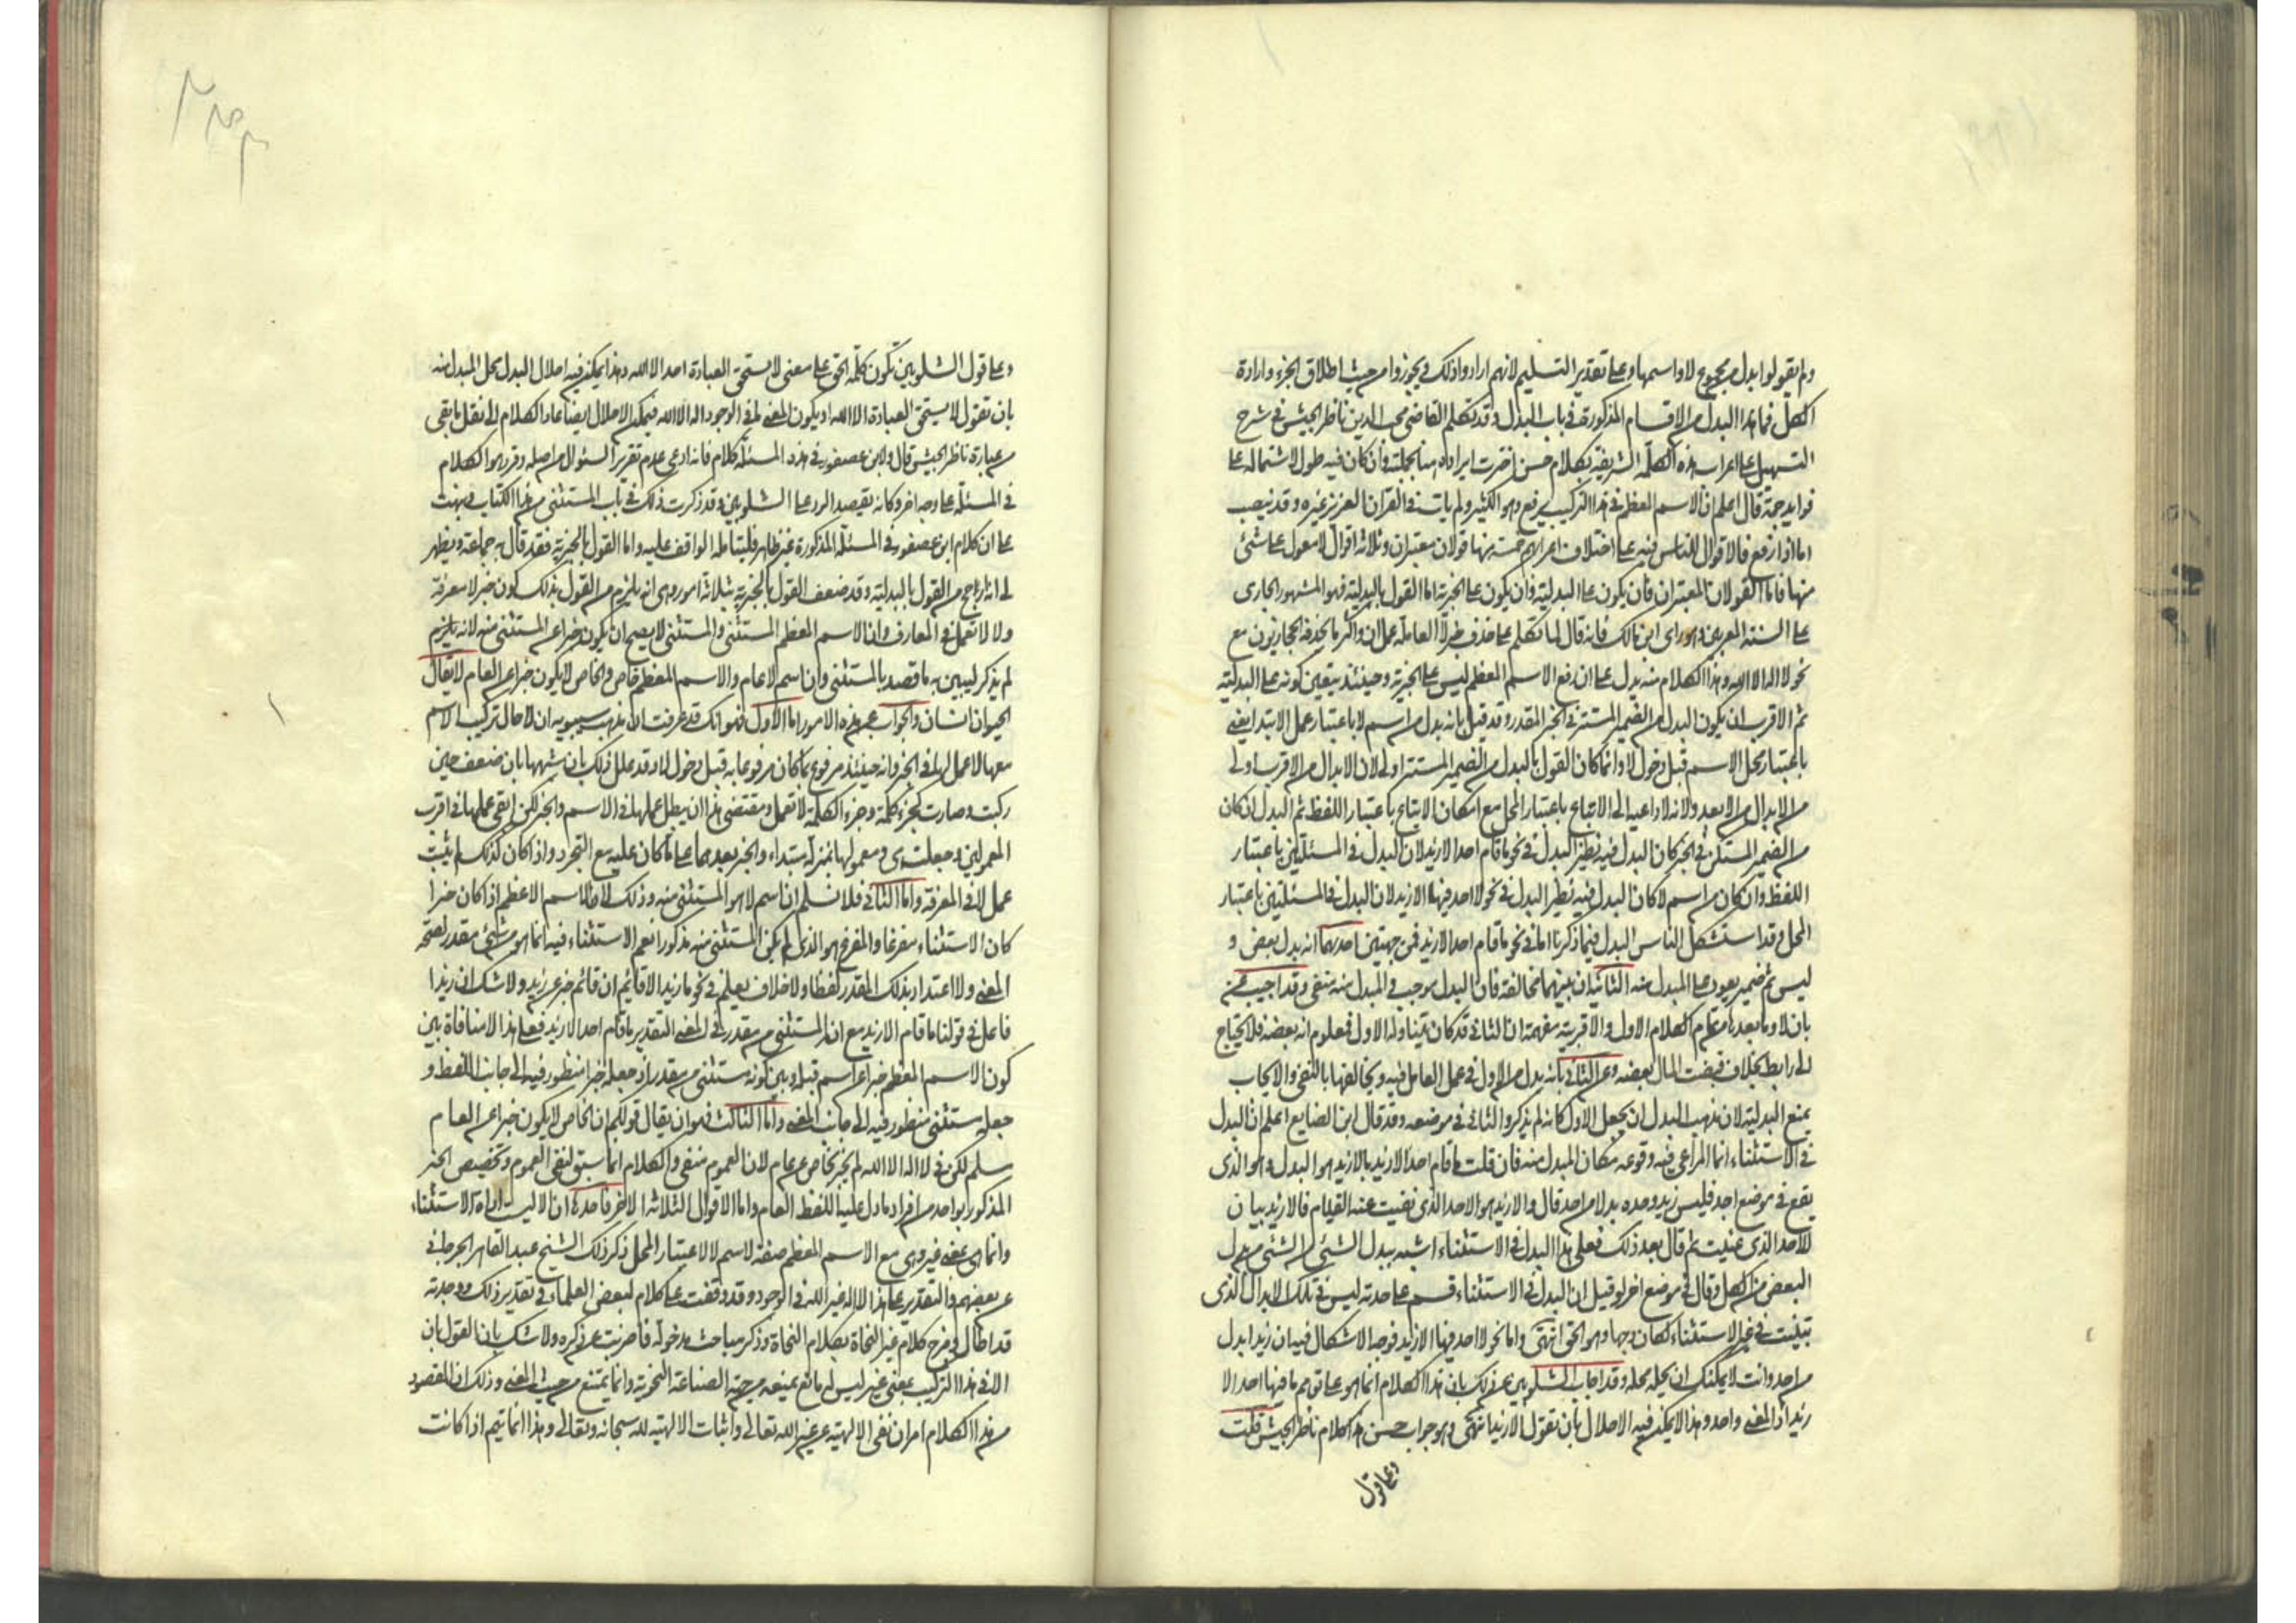 ولم يقولوا بدل من مجموع لا واسمها وعلى تقدير التسليم لانهم ارادوا ذلك فيجوزوا من حيث اطلاق الجزء وارادة
الكل فما هذا البدل من الاقسام المذكورة في باب البدل وقد تكلم القاضي محب الدين ناظر الجيش في شرح
التسهيل على اعراب هذه الكلمة الشريفة بكلام حسن اخترت ايراده هنا بجملته وان كان فيه طول لاشتماله على
فوايد جمة قال اعلم ان الاسم المعظم في هذا التركيب يرفع وهو الكثير ولم يات في القران العزيز غيره وقد ينصب
اما اذا رفع فالاقوال للناس فيه على اختلاف اعرابهم خمسة منها قولان معتبران وثلاثة اقوال لا معول على شئ
منها فاما القولان المعتبران فان يكون على البدلية وان يكون على الخبرية اما القول بالبدلية فهو المشهور الجارى
على السنة المعربين وهو راى ابن مالك فانه قال لما تكلم على حذف خبر لا العاملة عمل ان واكثر ما يحذفه الحجازيون مع
نحو لا اله الا الله وهذا الكلام منه يدل على ان رفع الاسم المعظم ليس على الخبرية وحينئذ يتعين كونه على البدلية
ثم الاقرب ان يكون البدل من الضمير المستتر في الخبر المقدر وقد قيل بانه بدل من اسم لا باعتبار عمل الابتدا يعني
باعتبار محل الاسم قبل دخول لا وانما كان القول بالبدل من الضمير المستتر اولى لان الابدال من الاقرب اولى
من الابدال من الابعد ولانه لا داعية الى الاتباع باعتبار المحل مع امكان الاتباع باعتبار اللفظ ثم البدل ان كان
من الضمير المستكن في الخبر كان البدل فيه نظير البدل في نحو ما قام احد الا زيد لان البدل في المسئلتين باعتبار
اللفظ وان كان من اسم لا كان البدل فيه نظير البدل في نحو لا احد فيها الا زيد لان البدل في المسئلتين باعتبار
المحل وقد استشكل الناس البدل فيما ذكرنا اما في نحو ما قام احد الا زيد فمن جهتين احدهما انه بدل بعض و
ليس ثم ضمير يعود على المبدل منه الثاني ان بينهما مخالفة فان البدل موجب والمبدل منه منفي وقد اجيب عن
بان لا وما بعدها من تمام الكلام الاول والا قرينة مفهمة ان الثاني قد كان يتناوله الاول فمعلوم انه بعضه فلا يحتاج
الى رابط بخلاف قبضت المال بعضه وعن الثاني بانه بدل من الاول في عمل العامل فيه وتخالفهما بالنفي والايجاب
يمنع البدلية لان مذهب البدل ان يجعل الاول كانه لم يذكر والثاني في موضعه وقد قال ابن الضايع اعلم ان البدل
في الاستثناء انما المراعى فيه وقوعه مكان المبدل منه فان قلت ما قام احد الا زيد فالا زيد هو البدل وهو الذى
يقع في موضع احد فليس زيد وحده بدلا من احد قال والا زيد هو الاحد الذى نفيت عنه القيام فالا زيد بيان
للاحد الذى عنيت ثم قال بعد ذلك فعلى هذا البدل في الاستثناء اشبه ببدل الشئ من الشئ من بدل
البعض من الكل وقال في موضع اخر لو قيل ان البدل في الاستثناء قسم على حدته ليس من تلك الابدال الذى
تبينت في غير الاستثناء لكان وجها وهو الحق انتهى واما نحو لا احد فيها الا زيد فوجه الاشكال فيه ان زيدا بدل
من احد وانت لا يمكنك ان تحله محله وقد اجاب الشلوبين عن ذلك بان هذا الكلام انما هو على توهم ما فيها احد الا
زيد اذ المعنى واحد وهذا لا يمكن فيه الاحلال بان تقول الا زيد انتهى وهو جواب حسن هذا كلام ناظر الجيش قلت
وعلى قول
وعلى قول الشلوبين تكون كلمة الحق على معنى لا يستحق العبادة احد الا الله وهذا يمكن فيه احلال البدل محل المبدل منه
بان تقول لا يستحق العبادة الا الله او يكون المعنى لما في الوجود اله الا الله فيمكن الاحلال ايضا عاد الكلام الى نقل ما بقى
من عبارة ناظر الجيش قال ولابن عصفور في هذه المسئلة كلام فانه ادعى عدم تقرير السئوال من اصله وقرر هو الكلام
في المسئلة على وجه اخر وكانه يقصد الرد على الشلوبين وقد ذكرت ذلك في باب المستثنى من هذا الكتاب وبينت
على ان كلام ابن عصفور في المسئلة المذكورة غير ظاهر فليتامله الواقف عليه واما القول بالخبرية فقد قال به جماعة ويظهر
لى انه ارجح من القول بالبدلية وقد ضعف القول بالخبرية بثلاثة امور وهى انه يلزم من القول بذلك كون خبر لا معرفة
ولا لا تعمل في المعارف وان الاسم المعظم المستثنى والمستثنى لا يصح ان يكون خبرا عن المستثنى منه لانه يلزم
لم يذكر ليبين به ما قصد بالمستثنى وان اسم لا عام والاسم المعظم خاص والخاص لا يكون خبرا عن العام لا يقال
الحيوان انسان والجواب عن هذه الامور اما الاول فهو انك قد عرفت ان مذهب سيبويه ان لا حال تركيب الاسم
معها لا عمل لها في الخبر وانه حينئذ مرفوع بما كان مرفوعا به قبل دخول لا وقد علل ذلك بان شبهها بان ضعف حين
ركبت وصارت كجزء كلمة وجزء الكلمة لا تعمل ومقتضى هذا ان يبطل عملها في الاسم والخبر لكن ابقى عملها في اقرب
المعمولين وجعلت هى ومعمولها بمنزلة مبتداء والخبر بعدهما على ما كان عليه مع التجرد واذا كان كذلك لم يثبت
عمل لا في المعرفة واما الثاني فلا نسلم ان اسم لا هو المستثنى منه وذلك لان الاسم الاعظم اذا كان خبرا
كان الاستثناء مفرغا والمفرغ هو الذى لم يكن المستثنى منه مذكورا نعم الاستثناء فيه انما هو من شئ مقدر لصحة
المعنى ولا اعتداد بذلك المقدر لفظا ولا خلاف يعلم في نحو ما زيد الا قائم ان قائم خبر عن زيد ولا شك ان زيدا
فاعل في قولنا ما قام الا زيد مع انه المستثنى من مقدر في المعنى التقدير ما قام احد الا زيد فعلى هذا لا منافاة بين
كون الاسم المعظم خبرا عن اسم قبله وبين كونه مستثنى من مقدر اذ جعله خبرا منظور فيه الى جانب اللفظ و
جعله مستثنى منظور فيه الى جانب المعنى واما الثالث فهو ان يقال قولكم ان الخاص لا يكون خبرا عن العام
مسلم لكن في لا اله الا الله لم يخبر بخاص عن عام لان العموم منفي والكلام انما سبق لنفى العموم وتخصيص الخبر
المذكور بواحد من افراد ما دل عليه اللفظ العام واما الاقوال الثلاثة الاخر فاحدها ان الا ليست اداة الاستثناء
وانما هى بمعنى غير وهى مع الاسم المعظم صفة لاسم لا باعتبار المحل ذكر ذلك الشيخ عبد القاهر الجرجاني
عن بعضهم والتقدير على هذا لا اله غير الله في الوجود وقد وقفت على كلام لبعض العلماء في تقدير ذلك ووجدته
قد اطال ومزج كلام غير النحاة بكلام النحاة وذكر مباحث مدخولة فاضربت عن ذكره ولا شك بان القول بان
الا في هذا التركيب بمعنى غير ليس له مانع يمنعه من جهة الصناعة النحوية وانما يمتنع من حيث المعنى وذلك ان المقصود
من هذا الكلام امران نفى الالهية عن غير الله تعالى واثبات الالهية لله سبحانه وتعالى وهذا انما يتم اذا كانت